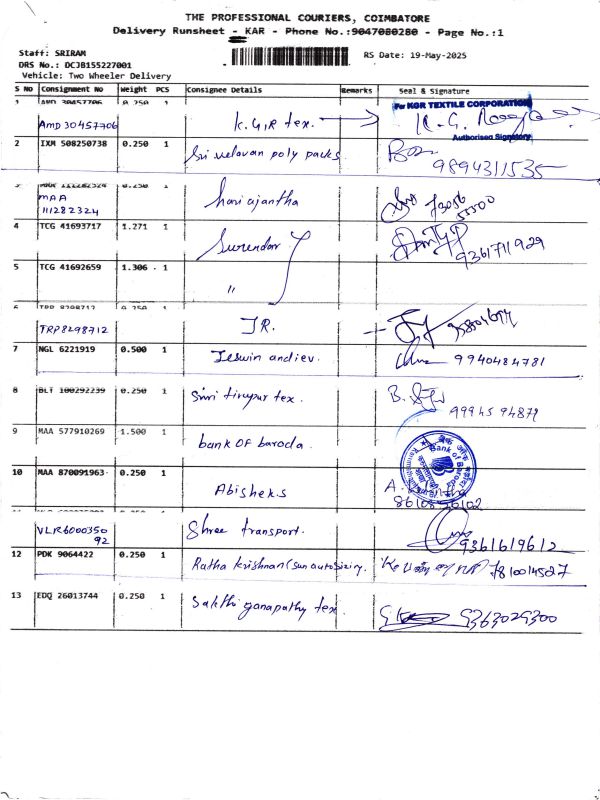 THE PROFESSIONAL COURIERS, COIMBATORE
Delivery Runsheet - KAR - Phone No.:9047080280 - Page No.:1
Staff: SRIRAM
RS Date: 19-May-2025
DRS No.: DCJB155227001
Vehicle: Two Wheeler Delivery
S NO Consignment No Weight PCS Consignee Details Remarks Seal & Signature
1 AMD 30457706 0.250 1
For KGR TEXTILE CORPORATION
AMD 30457706 K.G.R tex.
Authorised Signatory
2 IXM 508250738 0.250 1 Sri velavan poly packs
9894311535
3 MAA 111282324 0.250 1
MAA Hari ajantha 73056
111282324 55500
4 TCG 41693717 1.271 1 Surendar 9361711929
5 TCG 41692659 1.306 1 "
6 TRP 8298712 0.250 1
TRP 8298712 J R.
7 NGL 6221919 0.500 1 Jeswin andiev. 9940484781
8 BLT 100292239 0.250 1 Smri tirupur tex.
99945 94879
9 MAA 577910269 1.500 1 bank OF baroda.
Bank of Baroda
10 MAA 870091963 0.250 1 Abisheks
8610856102
VLR6000350 Shree transport. 9361619612
92
12 PDK 9064422 0.250 1 Ratha krishnan (sun autosizing. 7810014527
13 EDQ 26013744 0.250 1 Sakthi ganapathy tex 9363029300